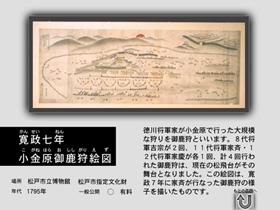 かん せい ねん
寛政七年
こ がね はら お しし がり え ず
小金原御鹿狩絵図
場所 松戸市立博物館 松戸市指定文化財
年代 1795年 一般公開 ○ 有料
徳川将軍家が小金原で行った大規模
な狩りを御鹿狩といいます。8代将
軍吉宗が2回、11代将軍家斉・1
2代将軍家慶が各1回、計4回行わ
れた御鹿狩は、現在の松飛台がその
舞台となりました。この絵図は、寛
政7年に家斉が行なった御鹿狩の様
子を描いたものです。